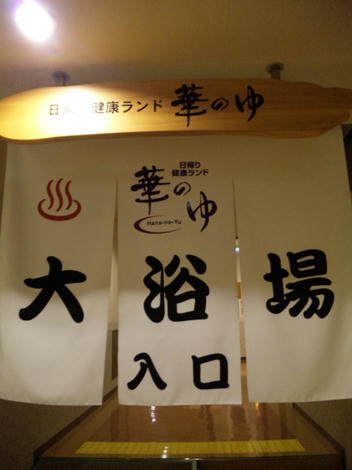 日帰り健康ランド 華のゆ
日帰り
健康ランド
華のゆ
Hana-no-Yu
大浴場
入口